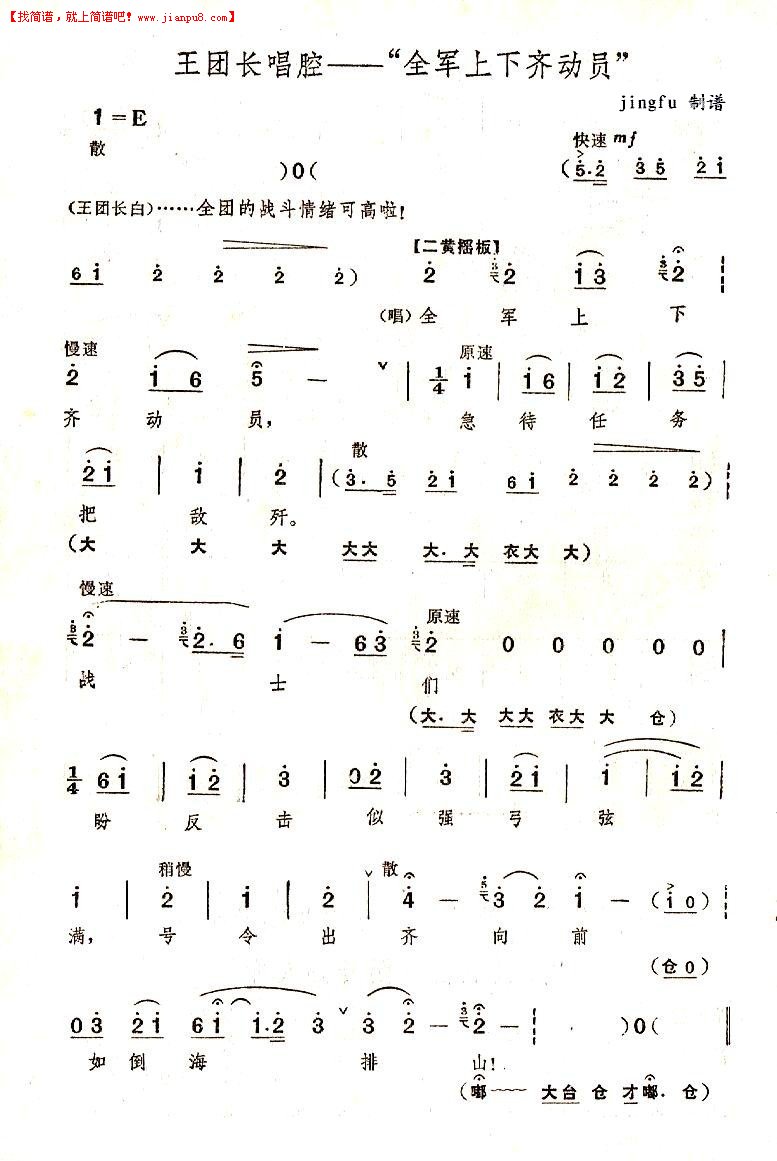 【找简谱，就上简谱吧！www.jianpu8.com】
王团长唱腔——“全军上下齐动员”
jingfu 制谱
1=E
散
快速 mf
)0(
(5·2 35 21
(王团长白)……全团的战斗情绪可高啦！
【二黄摇板】
61 2 2 2 2) 2 3 2 13 3 2
(唱)全 军 上 下
慢速 原速
2 16 5 — 1/4 1 | 16 | 12 | 35 |
齐 动 员， 急 待 任 务
散
21 | 1 | 2 | (3·5 21 61 2 2 2 2)
把 敌 歼。
(大 大 大 大大 大·大 衣大 大)
慢速 原速
3 2 — 3 2·6 1 — 63 3 2 0 0 0 0 0 |
战 士 们
(大·大 大大 衣大 大 仓)
1/4 61 | 12 | 3 | 02 | 3 | 21 | 1 | 12 |
盼 反 击 似 强 弓 弦
稍慢 散
1 | 2 | 1 | 2 | 4 — 5 3 2 1 — (10)
满， 号 令 出 齐 向 前
(仓0)
03 21 61 1·2 3 3 2 — 3 2 — )0(
如 倒 海 排 山！
(嘟—— 大台 仓 才嘟·仓)